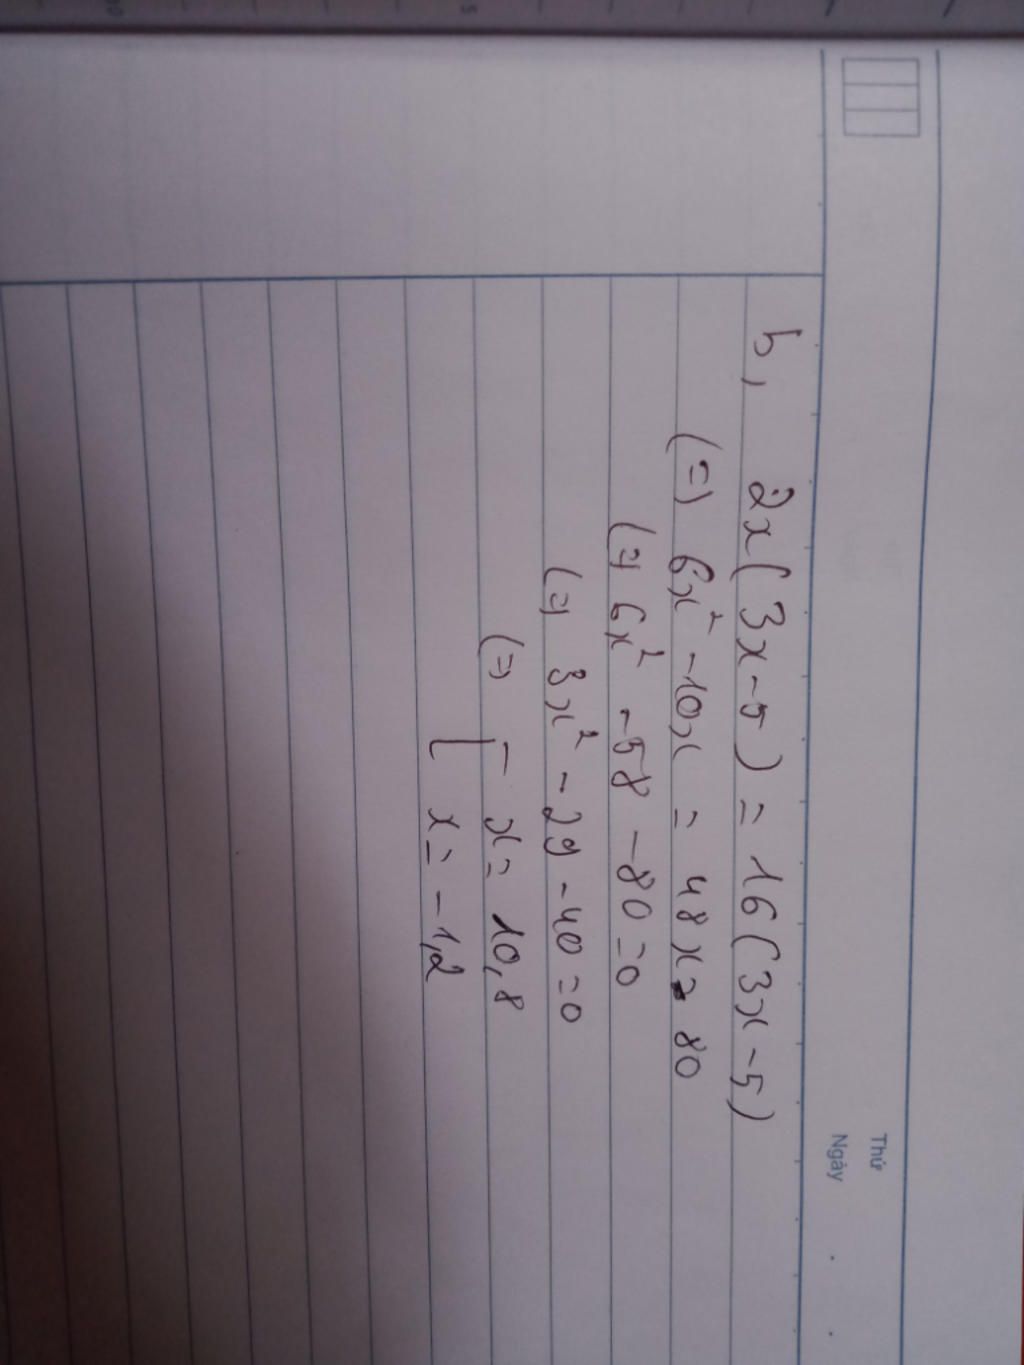 Thứ
Ngày
b, 2x(3x-5) = 16(3x-5)
(=) 6x² -10x = 48x - 80
(=) 6x² -58 -80 =0
(=) 3x² -29 -40 =0
(=) [ x= 10,8
x= -1,2